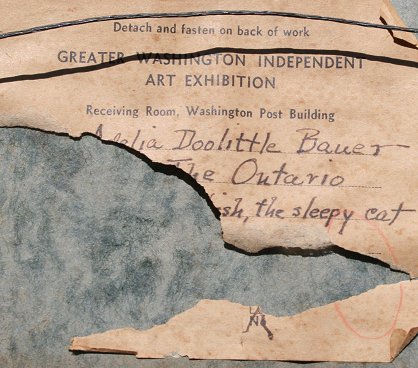 Detach and fasten on back of work
GREATER WASHINGTON INDEPENDENT
ART EXHIBITION
Receiving Room, Washington Post Building
Doolittle Bauer
The Ontario
sh, the sleepy cat